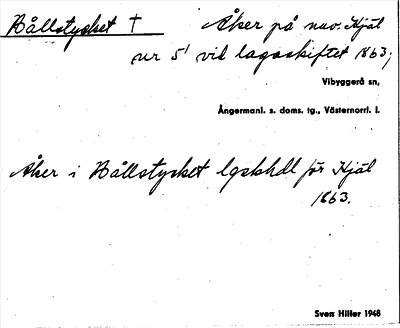 Hållstycket † Åker på nuv. Kjäl
nr 5¹ vid lagaskiftet 1863;
Vibyggerå sn,
Ångermanl. s. doms. tg., Västernorrl. l.
Åker i Hållstycket lgskhdl för Kjäl
1863.
Sven Hiller 1948